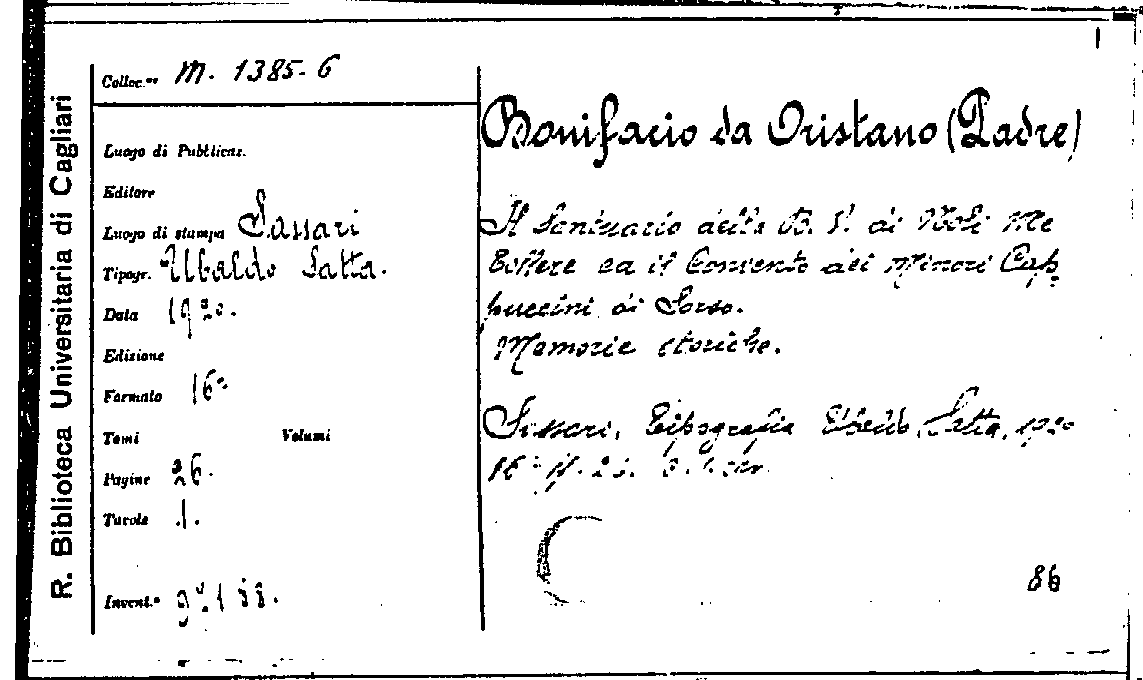 R. Biblioteca Universitaria di Cagliari
Colloc.ne M. 1385-6
Luogo di Pubblicaz.
Editore
Luogo di stampa Sassari
Tipogr. Ubaldo Satta.
Data 1920.
Edizione
Formato 16°
Tomi Volumi
Pagine 26.
Tavole 1.
Invent.°
Bonifacio da Oristano (Padre)
Il Santuario della B. V. di Noli Me
Tollere ed il Convento dei Minori Cap-
puccini di Sorso.
Memorie storiche.
Sassari, Tipografia Ubaldo Satta, 1920
16°
86